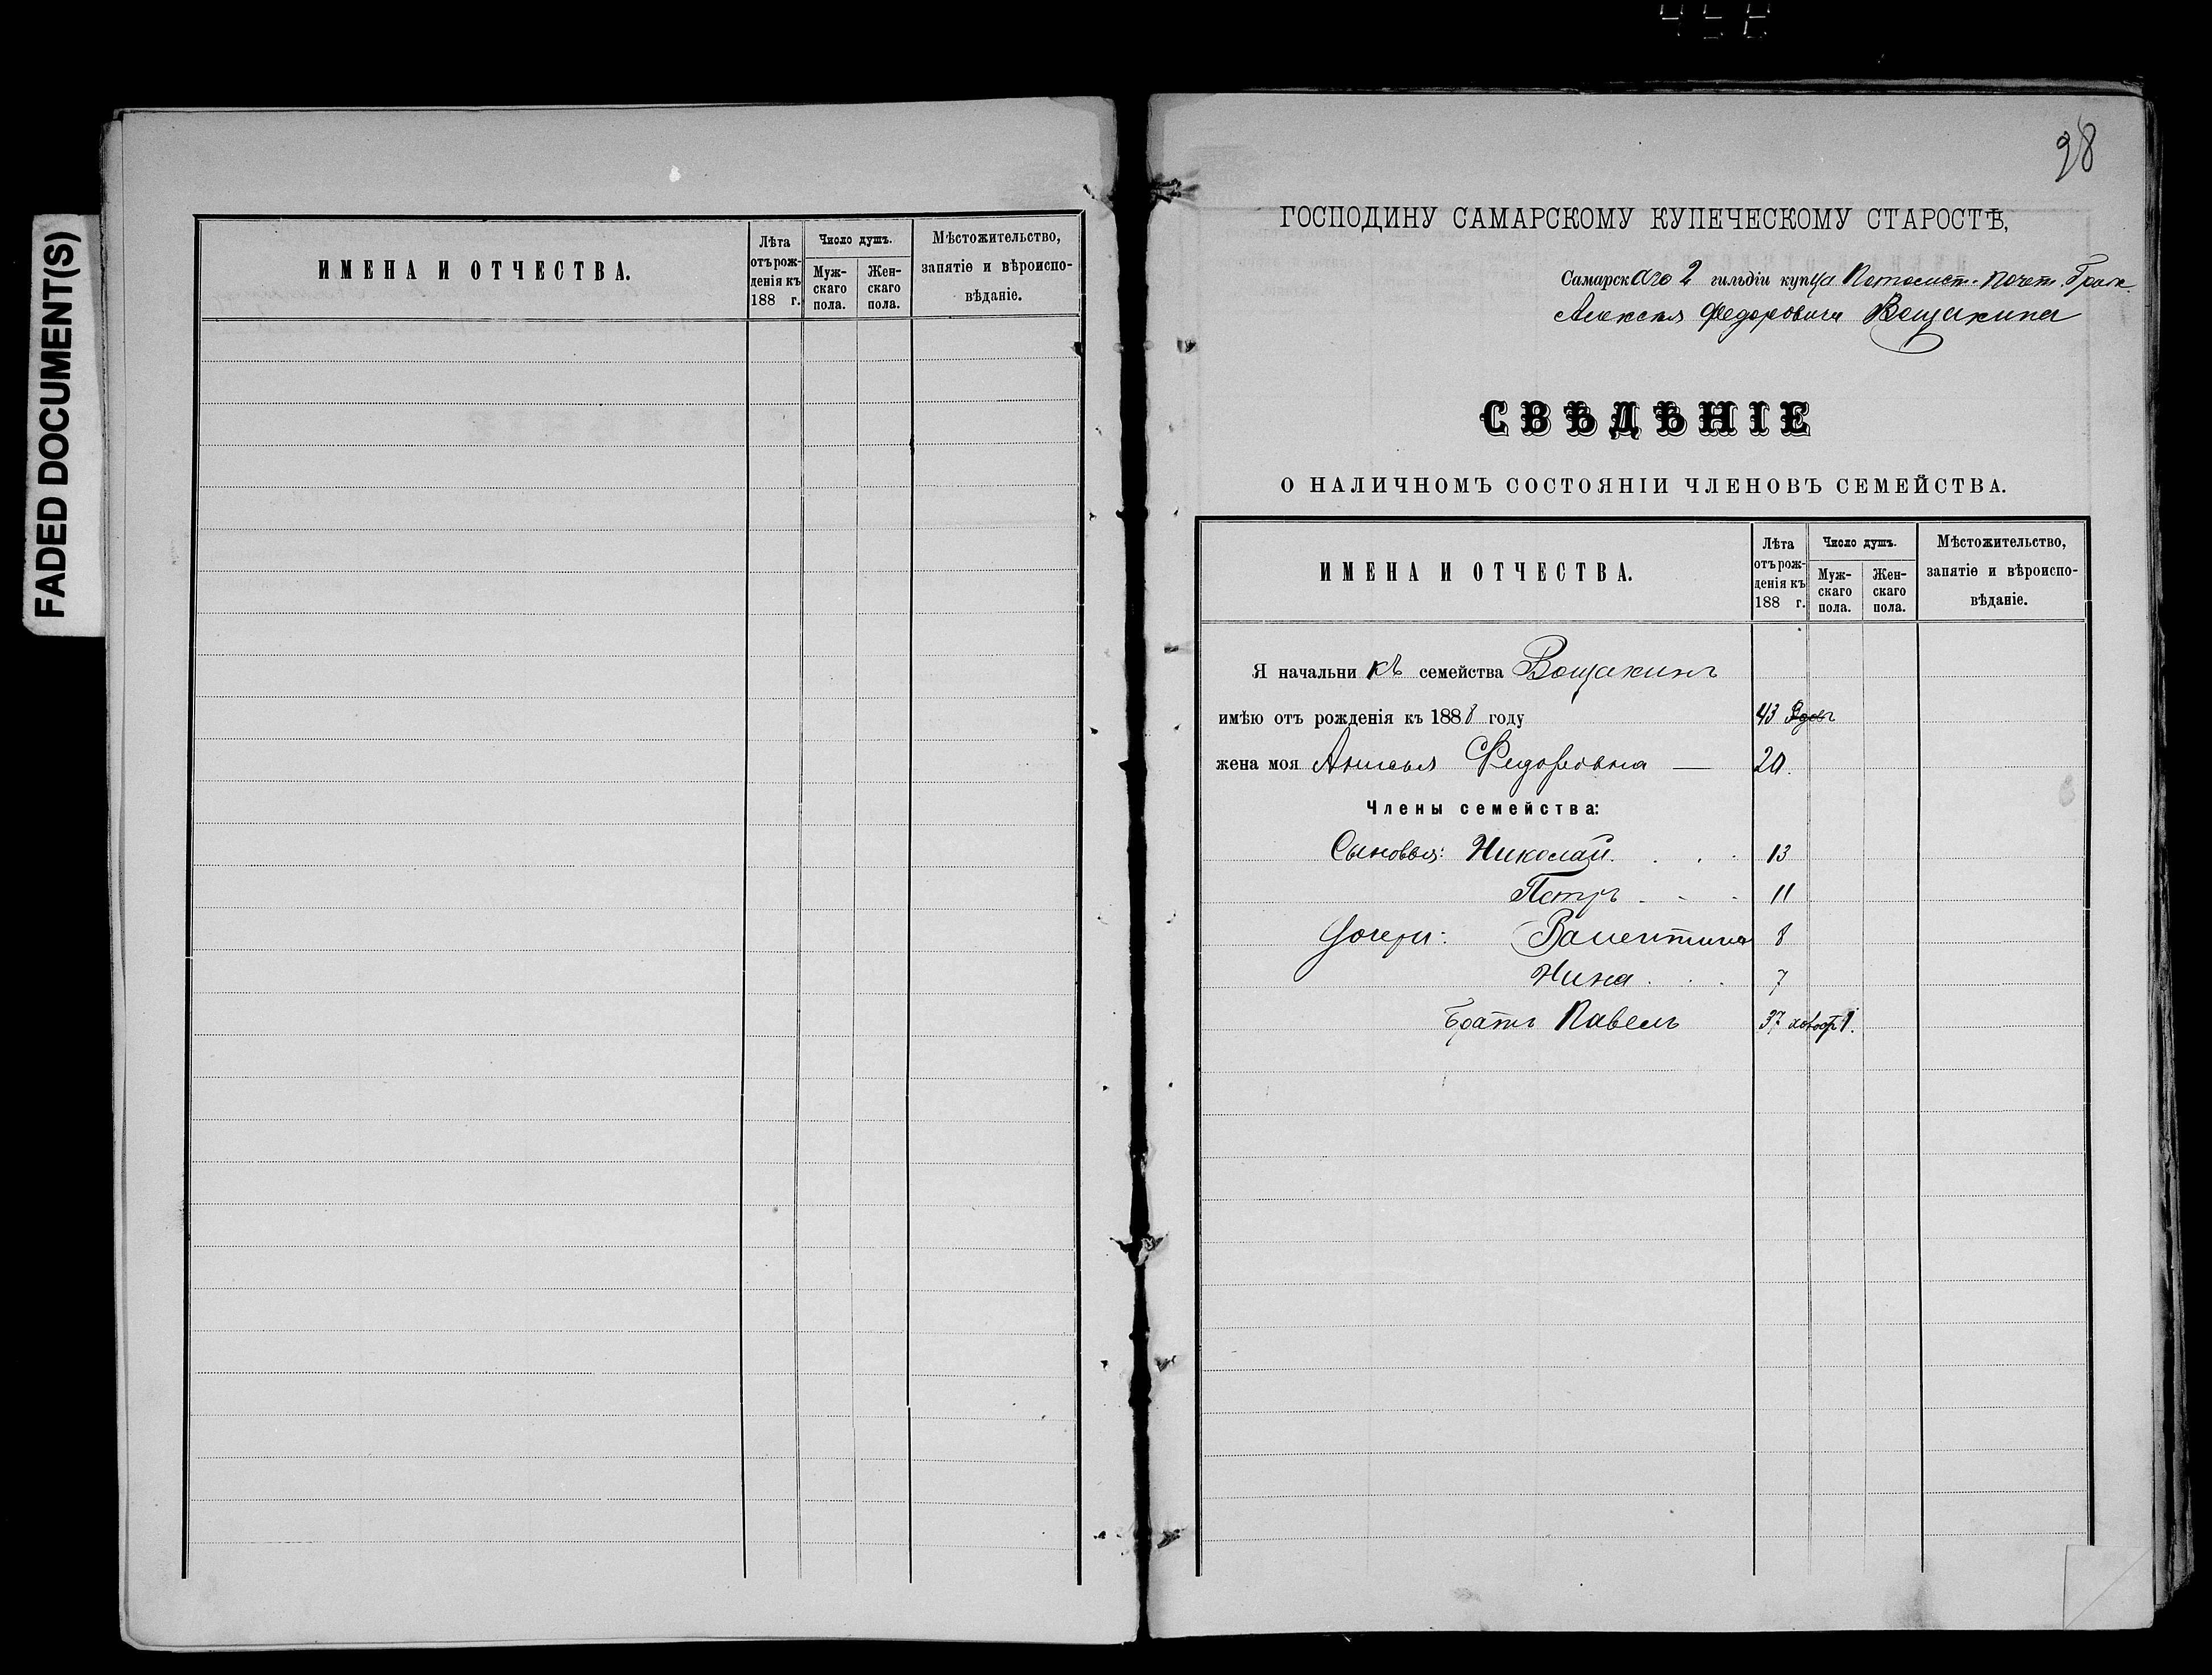 FADED DOCUMENT(S)
ИМЕНА И ОТЧЕСТВА.
Лѣта отъ рожденія къ 188 г.
Число душъ.
Мужскаго пола.
Женскаго пола.
Мѣстожительство, занятіе и вѣроисповѣданіе.
98
ГОСПОДИНУ САМАРСКОМУ КУПЕЧЕСКОМУ СТАРОСТѢ,
Самарскаго 2 гильдіи купца Потомст. Почет. Граж.
Алексѣя Федоровича Вощакина
СВѢДѢНІЕ
О НАЛИЧНОМЪ СОСТОЯНІИ ЧЛЕНОВЪ СЕМЕЙСТВА.
ИМЕНА И ОТЧЕСТВА.
Лѣта отъ рожденія къ 188 г.
Число душъ.
Мужскаго пола.
Женскаго пола.
Мѣстожительство, занятіе и вѣроисповѣданіе.
Я начальникъ семейства Вощакинъ
имѣю отъ рожденія къ 1888 году 43
жена моя Федоровна — 20.
Члены семейства:
Сыновья: Николай . . . 13
Петръ . . . 11
Дочери: Валентина 8
Нина . . . 7
Братъ Павелъ 37